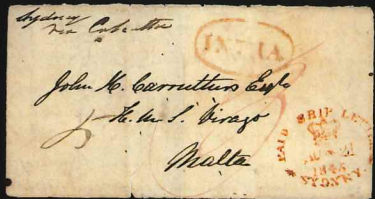 Sydney
via Calcutta
INDIA
John H. Carruthers Esqre
H. M. S. Virago
Malta
PAID SHIP LETTER
SYDNEY